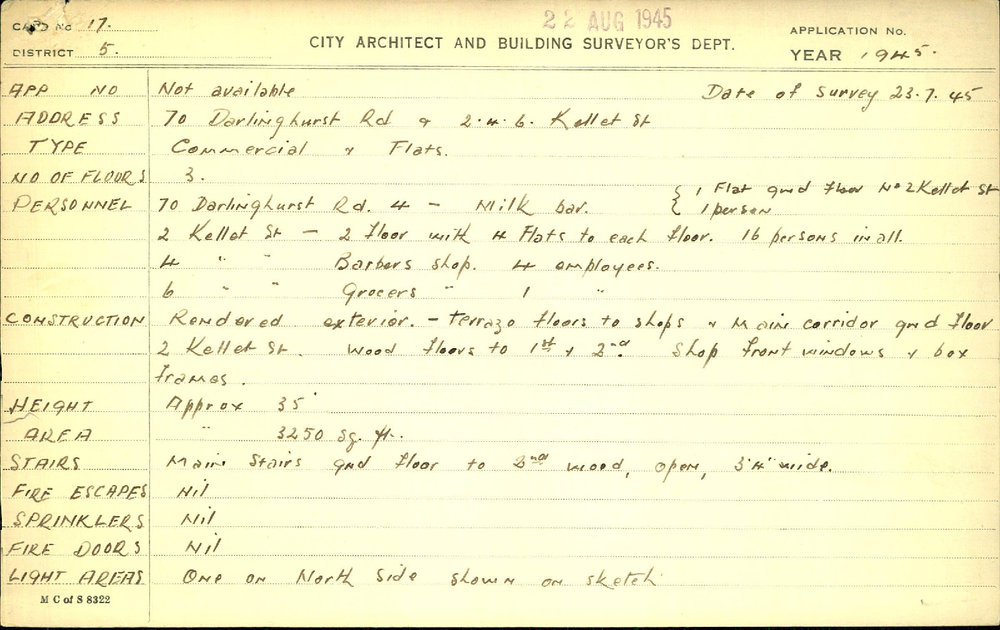 22 AUG 1945
CARD No 17.
DISTRICT 5.
CITY ARCHITECT AND BUILDING SURVEYOR'S DEPT.
APPLICATION No.
YEAR 1945.
APP NO Not available Date of Survey 23.7.45
ADDRESS 70 Darlinghurst Rd & 2.4.6. Kellet St
TYPE Commercial & Flats.
NO OF FLOORS 3.
PERSONNEL 70 Darlinghurst Rd. 4 - Milk bar. { 1 Flat gnd floor No 2 Kellet St
{ 1 person
2 Kellet St - 2 floor with 4 Flats to each floor. 16 persons in all.
4 " " Barbers shop. 4 employees.
6 " " Grocers " 1 "
CONSTRUCTION Rendered exterior. - terrazo floors to shops & Main corridor gnd floor
2 Kellet St. Wood floors to 1st & 2nd Shop front windows & box
frames.
HEIGHT Approx 35'
AREA " 3250 sq. ft.
STAIRS Main stairs gnd floor to 2nd wood, open, 3'4" wide.
FIRE ESCAPES Nil
SPRINKLERS Nil
FIRE DOORS Nil
LIGHT AREAS One on North side shown on sketch
M C of S 8322